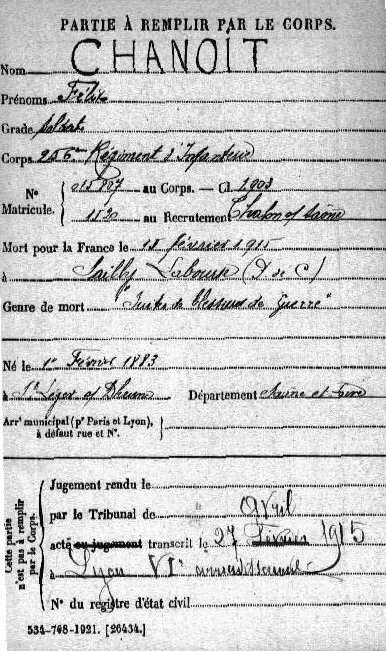 PARTIE À REMPLIR PAR LE CORPS.
Nom CHANOIT
Prénoms Félix
Grade soldat
Corps 256me Régiment d'Infanterie
N° Matricule. 015807 au Corps. — Cl. 1903
1520 au Recrutement Chalon s/ Saône
Mort pour la France le 18 février 1915
à Sailly Labourse (P. de C.)
Genre de mort "Suites de blessures de Guerre"
Né le 1er Février 1883
à St Léger s/ Dheune Département Saône et Loire
Arrt municipal (pr Paris et Lyon),
à défaut rue et N°.
Cette partie n'est pas à remplir par le Corps.
Jugement rendu le
par le Tribunal de
avril
acte ou jugement transcrit le 27 Février 1915
à Lyon VIe arrondissement
N° du registre d'état civil
534-708-1921. [26434.]